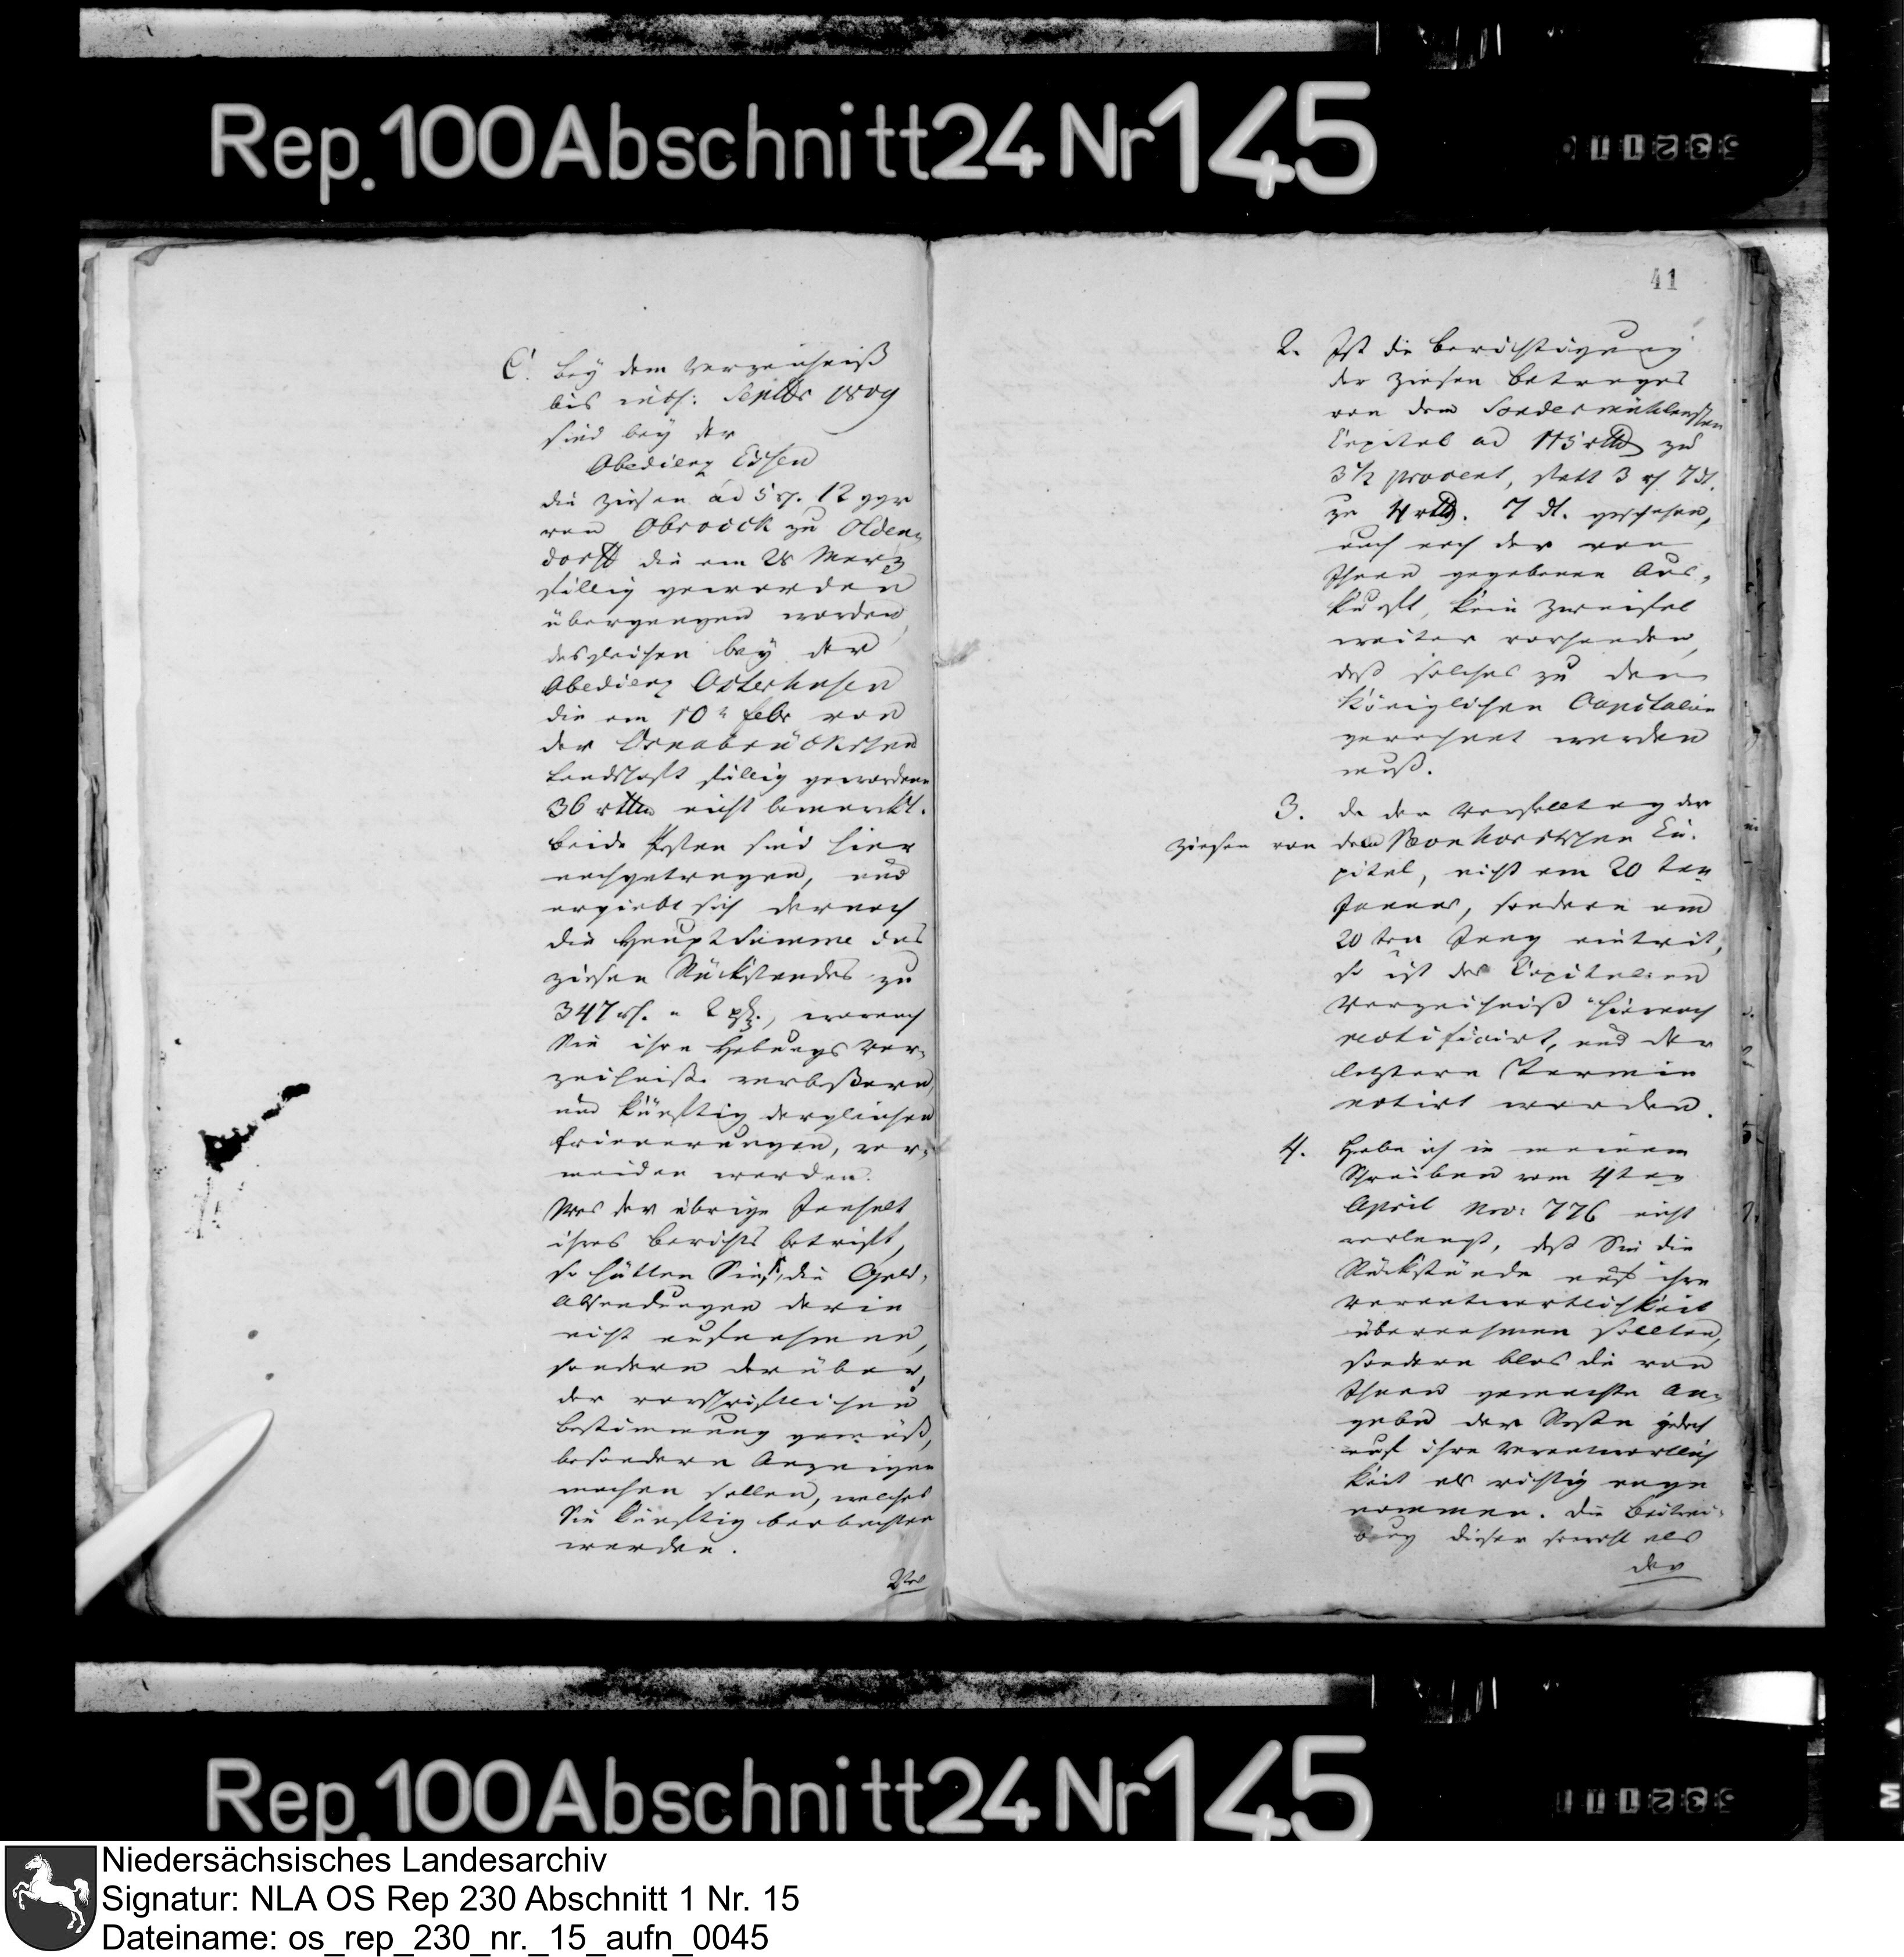 Rep. 100 Abschnitt 24 Nr 145
C. bey dem Verzeichniß
bis ult: Septbr 1809
sind bey der
Obedienz Essen
die Zinsen ad 5 rt. 12 ggr
von Obrock zu Olden-
dorff die am 28 Merz
fällig geworden
übergangen worden,
desgleichen bey der
Obedienz Osterhusen
die am 10n Febr von
der Osnabrückschen
Landschaft fällig gewordene
36 rthlr nicht bemerckt.
beide Posten sind hier
nachgetragen, und
ergiebt sich darnach
die Haupt Summe des
Zinsen Rückstandes zu
347 rt. " 2 , wonach
Sie ihre Hebungs Ver-
zeichniße verbeßern,
und künftig dergleichen
Erinnerungen, ver-
meiden werden.
Was der übrige Innhalt
ihres Berichts betrift,
so hätten Sie, die Geld-
Absendungen darin
nicht aufnehmen,
sondern darüber,
der vorschriftlichen
Bestimmung gemäß,
besondere Anzeigen
machen sollen, welches
Sie künftig beobachten
werden.
41
2. Ist die Berichtigung
der Zinsen Betrages
von dem Sondermühlenschen
Capital ad 115 rthlr zu
3 1/2 procent, statt 3 rt 7 dl.
zu 4 rthlr. 7 dl. geschehen,
auch nach der von
Ihnen gegebenen Aus-
kunft, kein Zweifel
weiter vorhanden,
daß solches zu den
Königlichen Capitalien
gerechnet werden
muß.
3. da der Verfalltag der
Zinsen von dem Monkorstschen Ca-
pital, nicht am 20 ten
Januar, sondern am
20 ten Juny eintrit,
so ist das Capitalien
Verzeichniß hiernach
rectificirt, und der
letztere Termin
notirt worden.
4. Habe ich in meinem
Schreiben vom 4 ten
April Nro: 776 nicht
verlangt, daß Sie die
Rückstände auf ihre
Verantwortlichkeit
übernehmen sollten,
sondern blos die von
Ihnen gemachte An-
gabe der Reste jedoch
auf ihre Verantwortlich
keit als richtig ange
nommen. Die Beitrei-
bung dieser sowohl als
der
Rep. 100 Abschnitt 24 Nr 145
Niedersächsisches Landesarchiv
Signatur: NLA OS Rep 230 Abschnitt 1 Nr. 15
Dateiname: os_rep_230_nr._15_aufn_0045